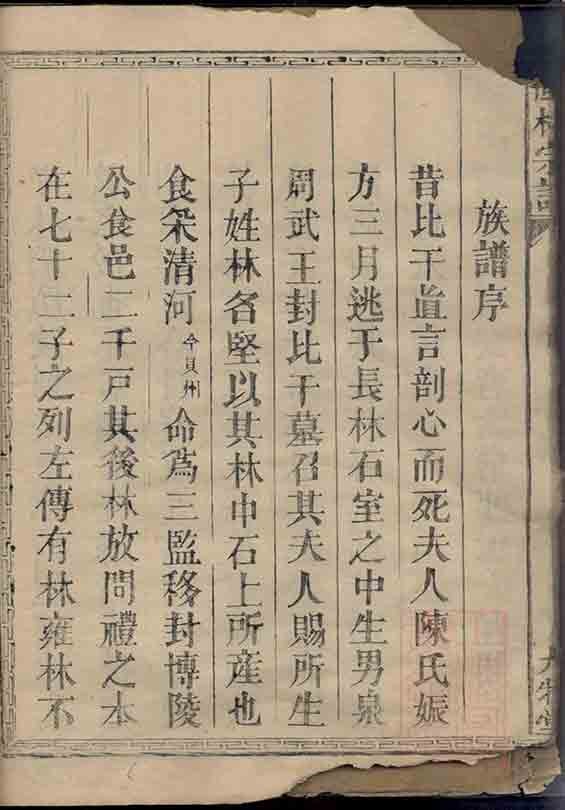 族譜序
昔比干直言剖心而死夫人陳氏娠
方三月逃于長林石室之中生男泉
周武王封比干墓召其夫人賜所生
子姓林名堅以其林中石上所產也
食采清河今貝州命爲三監移封博陵
公食邑二千戸其後林放問禮之本
在七十二子之列左傳有林雍林不
林宗譜